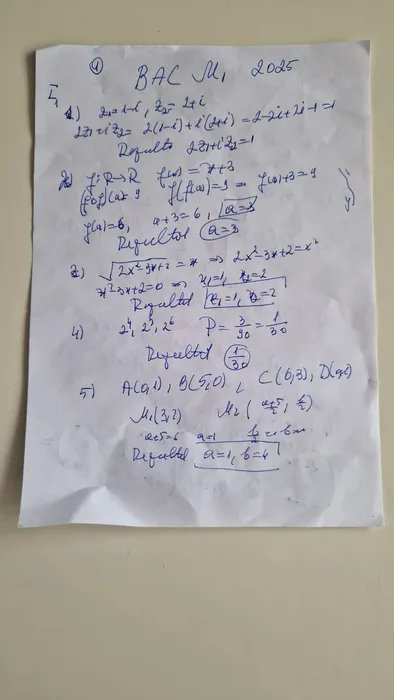 1
BAC M1 2025
I,
1) z1=1-i, z2=2+i
2z1+iz2= 2(1-i)+i(2+i)=2-2i+2i-1=1
Rezultă 2z1+iz2=1
2) f:R→R f(x)=x+3
(fof)(a)=9 f(f(a))=9 ⇒ f(a)+3=9
f(a)=6, a+3=6, a=3
Rezultă a=3
3) √2x²-3x+2=x ⇒ 2x²-3x+2=x²
x²-3x+2=0 ⇒ x1=1, x2=2
Rezultă x1=1, x2=2
4) 2⁴, 2⁵, 2⁶ P=3/90=1/30
Rezultă 1/30
5) A(0,1), B(5,0), C(6,3), D(a,b)
M1(3,2) M2(a+5/2, b/2)
a+5=6 a=1
Rezultă a=1, b=4